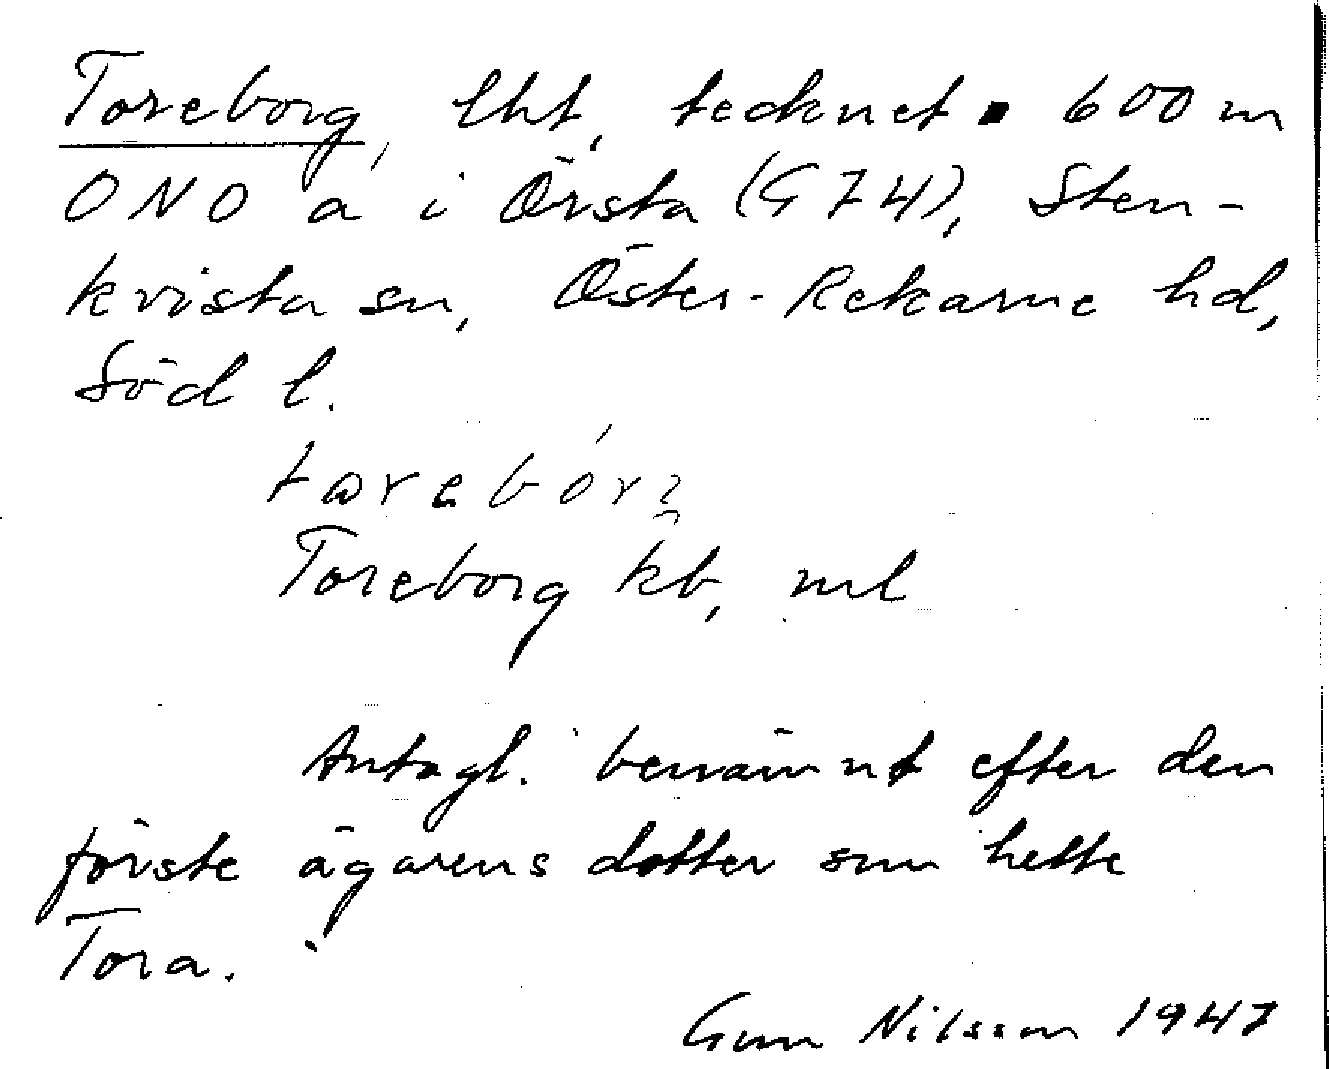 Toreborg, lht, tecknet ▪ 600 m
ONO a i Örsta (G74), Sten-
kvista sn, Öster-Rekarne hd,
Söd l.
Toreborg kb, ml
Antagl. benämnt efter den
förste ägarens dotter som hette
Tora.
Gun Nilsson 1947